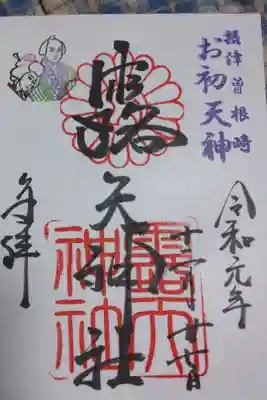 摂津曽根崎
お初天神
令和元年
十二月廿二日
露天神社
奉拝
露天神社